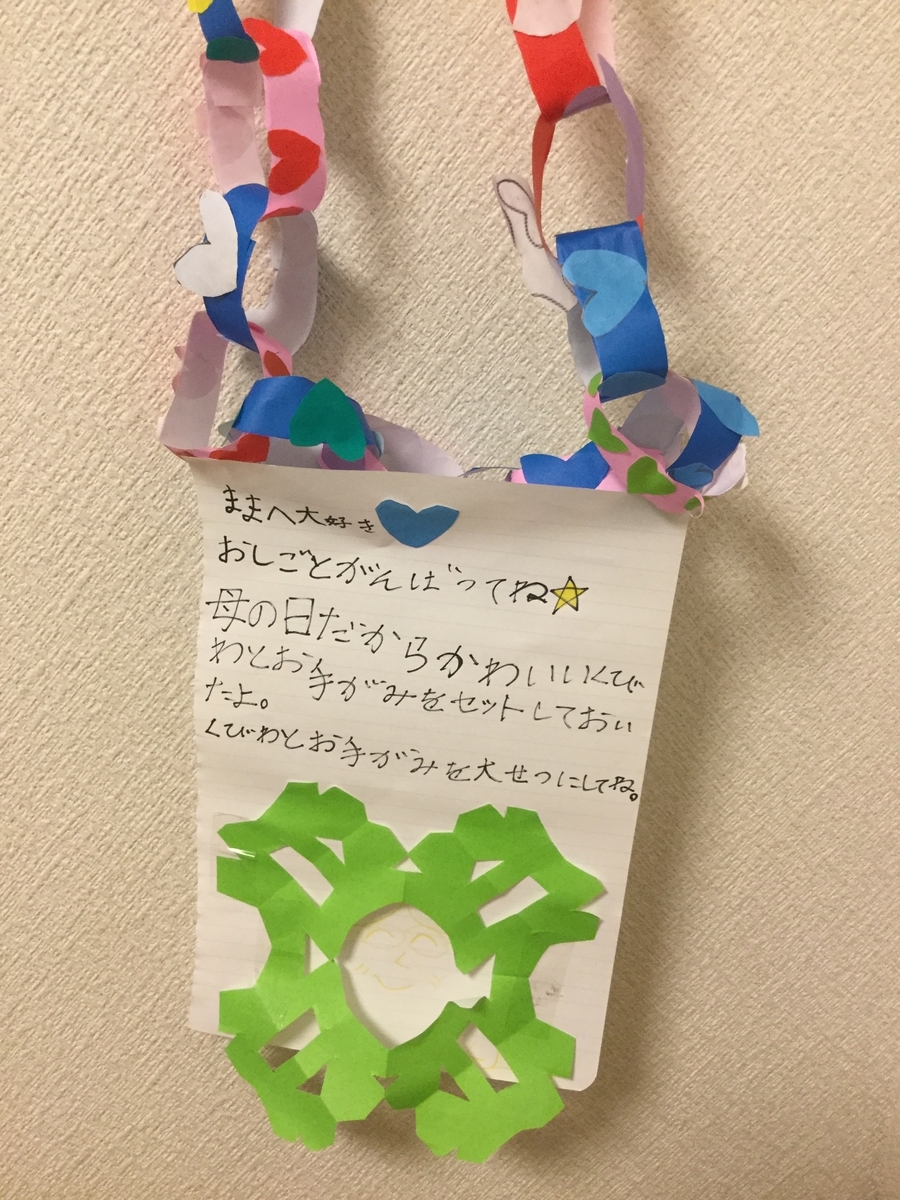 ままへ大好き
おしごとがんばってね
母の日だからかわいいくび
わとお手がみをセットしておい
たよ。
くびわとお手がみを大せつにしてね。